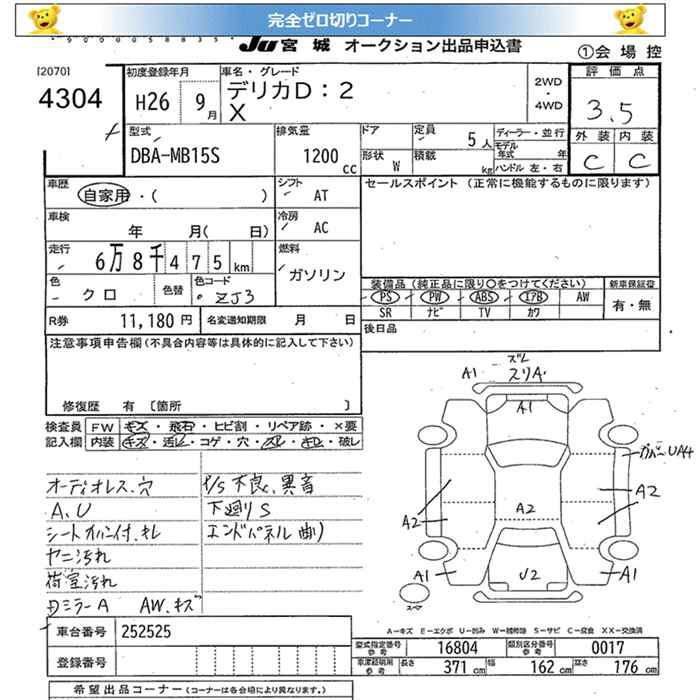 完全ゼロ切りコーナー
0000058835
JU 宮城 オークション出品申込書 ①会場控
[2070]
4304
初度登録年月
H26 9月
車名・グレード
デリカD:2
X
2WD
・
4WD
評価点
3.5
型式
DBA-MB15S
排気量
1200cc
ドア
定員
5人
ディーラー・並行
モデル年式 年
外装 内装
C C
形状
W
積載
kg
ハンドル 左・右
車歴
自家用・( )
シフト
AT
セールスポイント (正常に機能するものに限ります)
車検
年 月( 日)
冷房
AC
走行
6万8千475km
燃料
ガソリン
色
クロ
色替
色コード
ZJ3
装備品(純正品に限り○をつけてください) 新車保証書
PS PW ABS エアB AW 有・無
SR ナビ TV カワ
R券 11,180円 名変通知期限 月 日
後日品
注意事項申告欄(不具合内容等は具体的に記入して下さい)
修復歴 有 〔箇所 〕
検査員記入欄
FW キズ・飛石・ヒビ割・リペア跡・×要
内装 キズ・汚レ・コゲ・穴・スレ・キレ・破レ
オーディオレス、穴
A、U
シート、キレ
ヤニ汚れ
荷室汚れ
Dミラー A AW、キズ
P/S不良、異音
下廻りS
エンドパネル曲り
ズレ
A1 スリA'
A1
UA4
A2
A2
A2
A1
U2
A1
スペア
A-キズ E-エクボ U-凹み W-補修跡 S-サビ C-腐食 XX-交換済
車台番号 252525
型式指定番号 参考 16804 類別区分番号 参考 0017
登録番号
車検証明用 参考 長さ 371cm 幅 162cm 高さ 176cm
希望出品コーナー (コーナーは各会場により異なります。)